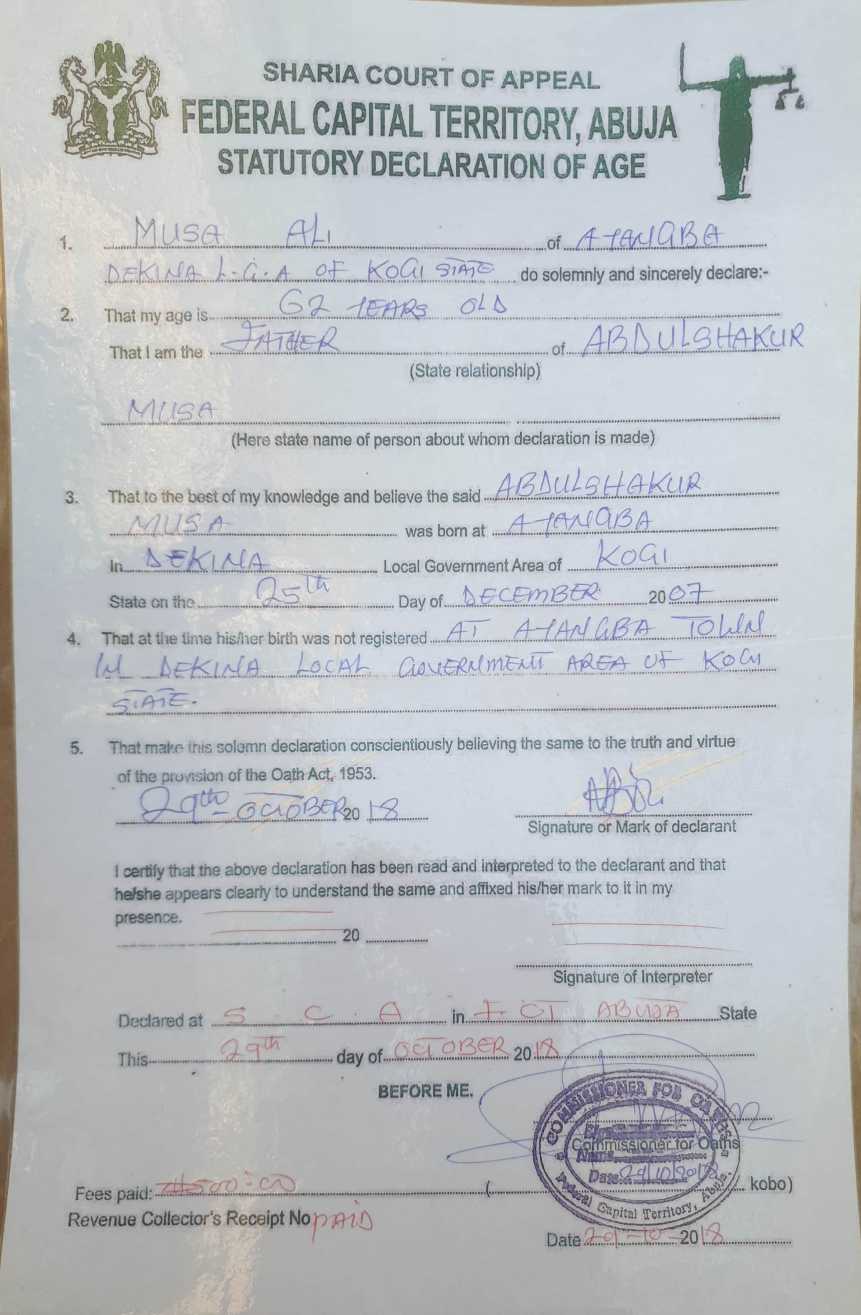 SHARIA COURT OF APPEAL
FEDERAL CAPITAL TERRITORY, ABUJA
STATUTORY DECLARATION OF AGE
1. MUSA ALI of AYANGBA
DEKINA L.G.A OF KOGI STATE do solemnly and sincerely declare:-
2. That my age is 62 YEARS OLD
That I am the FATHER of ABDULSHAKUR
(State relationship)
MUSA
(Here state name of person about whom declaration is made)
3. That to the best of my knowledge and believe the said ABDULSHAKUR
MUSA was born at AYANGBA
In DEKINA Local Government Area of KOGI
State on the 25th Day of DECEMBER 2007
4. That at the time his/her birth was not registered AT AYANGBA TOWN
IN DEKINA LOCAL GOVERNMENT AREA OF KOGI
STATE.
5. That make this solemn declaration conscientiously believing the same to the truth and virtue
of the provision of the Oath Act, 1953.
29th OCTOBER 20 18
Signature or Mark of declarant
I certify that the above declaration has been read and interpreted to the declarant and that
he/she appears clearly to understand the same and affixed his/her mark to it in my
presence.
20
Signature of Interpreter
Declared at S.C.A in FCT ABUJA State
This 29th day of OCTOBER 2018
BEFORE ME.
COMMISSIONER FOR OATHS
Commissioner for Oaths
Name
Date: 29/10/2018
Federal Capital Territory, Abuja.
Fees paid: ₦500:00 ( kobo)
Revenue Collector's Receipt No PAID
Date 29-10-2018